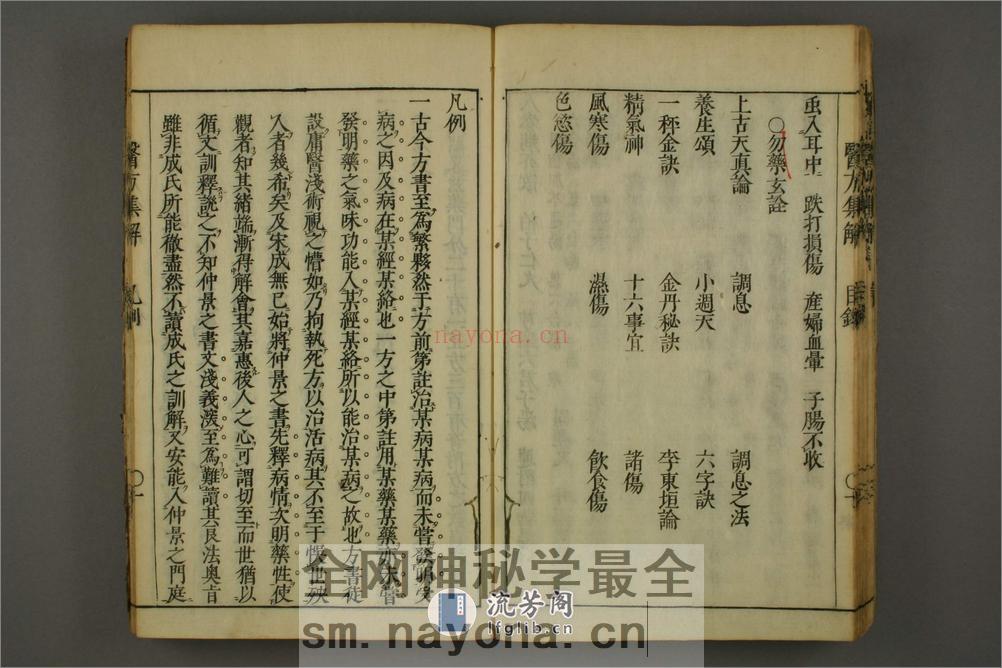 虫入耳中 跌打損傷 產婦血暈 子腸不收
○勿藥玄詮
上古天真論 調息 調息之法
養生頌 小週天 六字訣
一秤金訣 金丹秘訣 李東垣論
精氣神 十六事宜 諸傷
風寒傷 濕傷 飲食傷
色慾傷
醫方集解 目錄
凡例
一古今方書至為繁夥然于方前第註治某病某病而未嘗發明受
病之因及病在某經某絡也一方之中第註用某藥某藥亦未嘗
發明藥之氣味功能入某經某絡所以能治某病之故也方書徒
設庸醫淺術視之懵如乃拘執死方以治活病其不至于悞世殃
人者幾希矣及宋成無已始將仲景之書先釋病情次明藥性使
觀者知其緒端漸得解會其嘉惠後人之心可謂切至而世猶以
循文訓釋譏之不知仲景之書文淺義深至為難讀其良法奧旨
雖非成氏所能徹盡然不讀成氏之訓解又安能入仲景之門庭
醫方集解 凡例
nayona.cn
全网神秘学最全
流芳阁
lfglib.cn
sm.nayona.cn